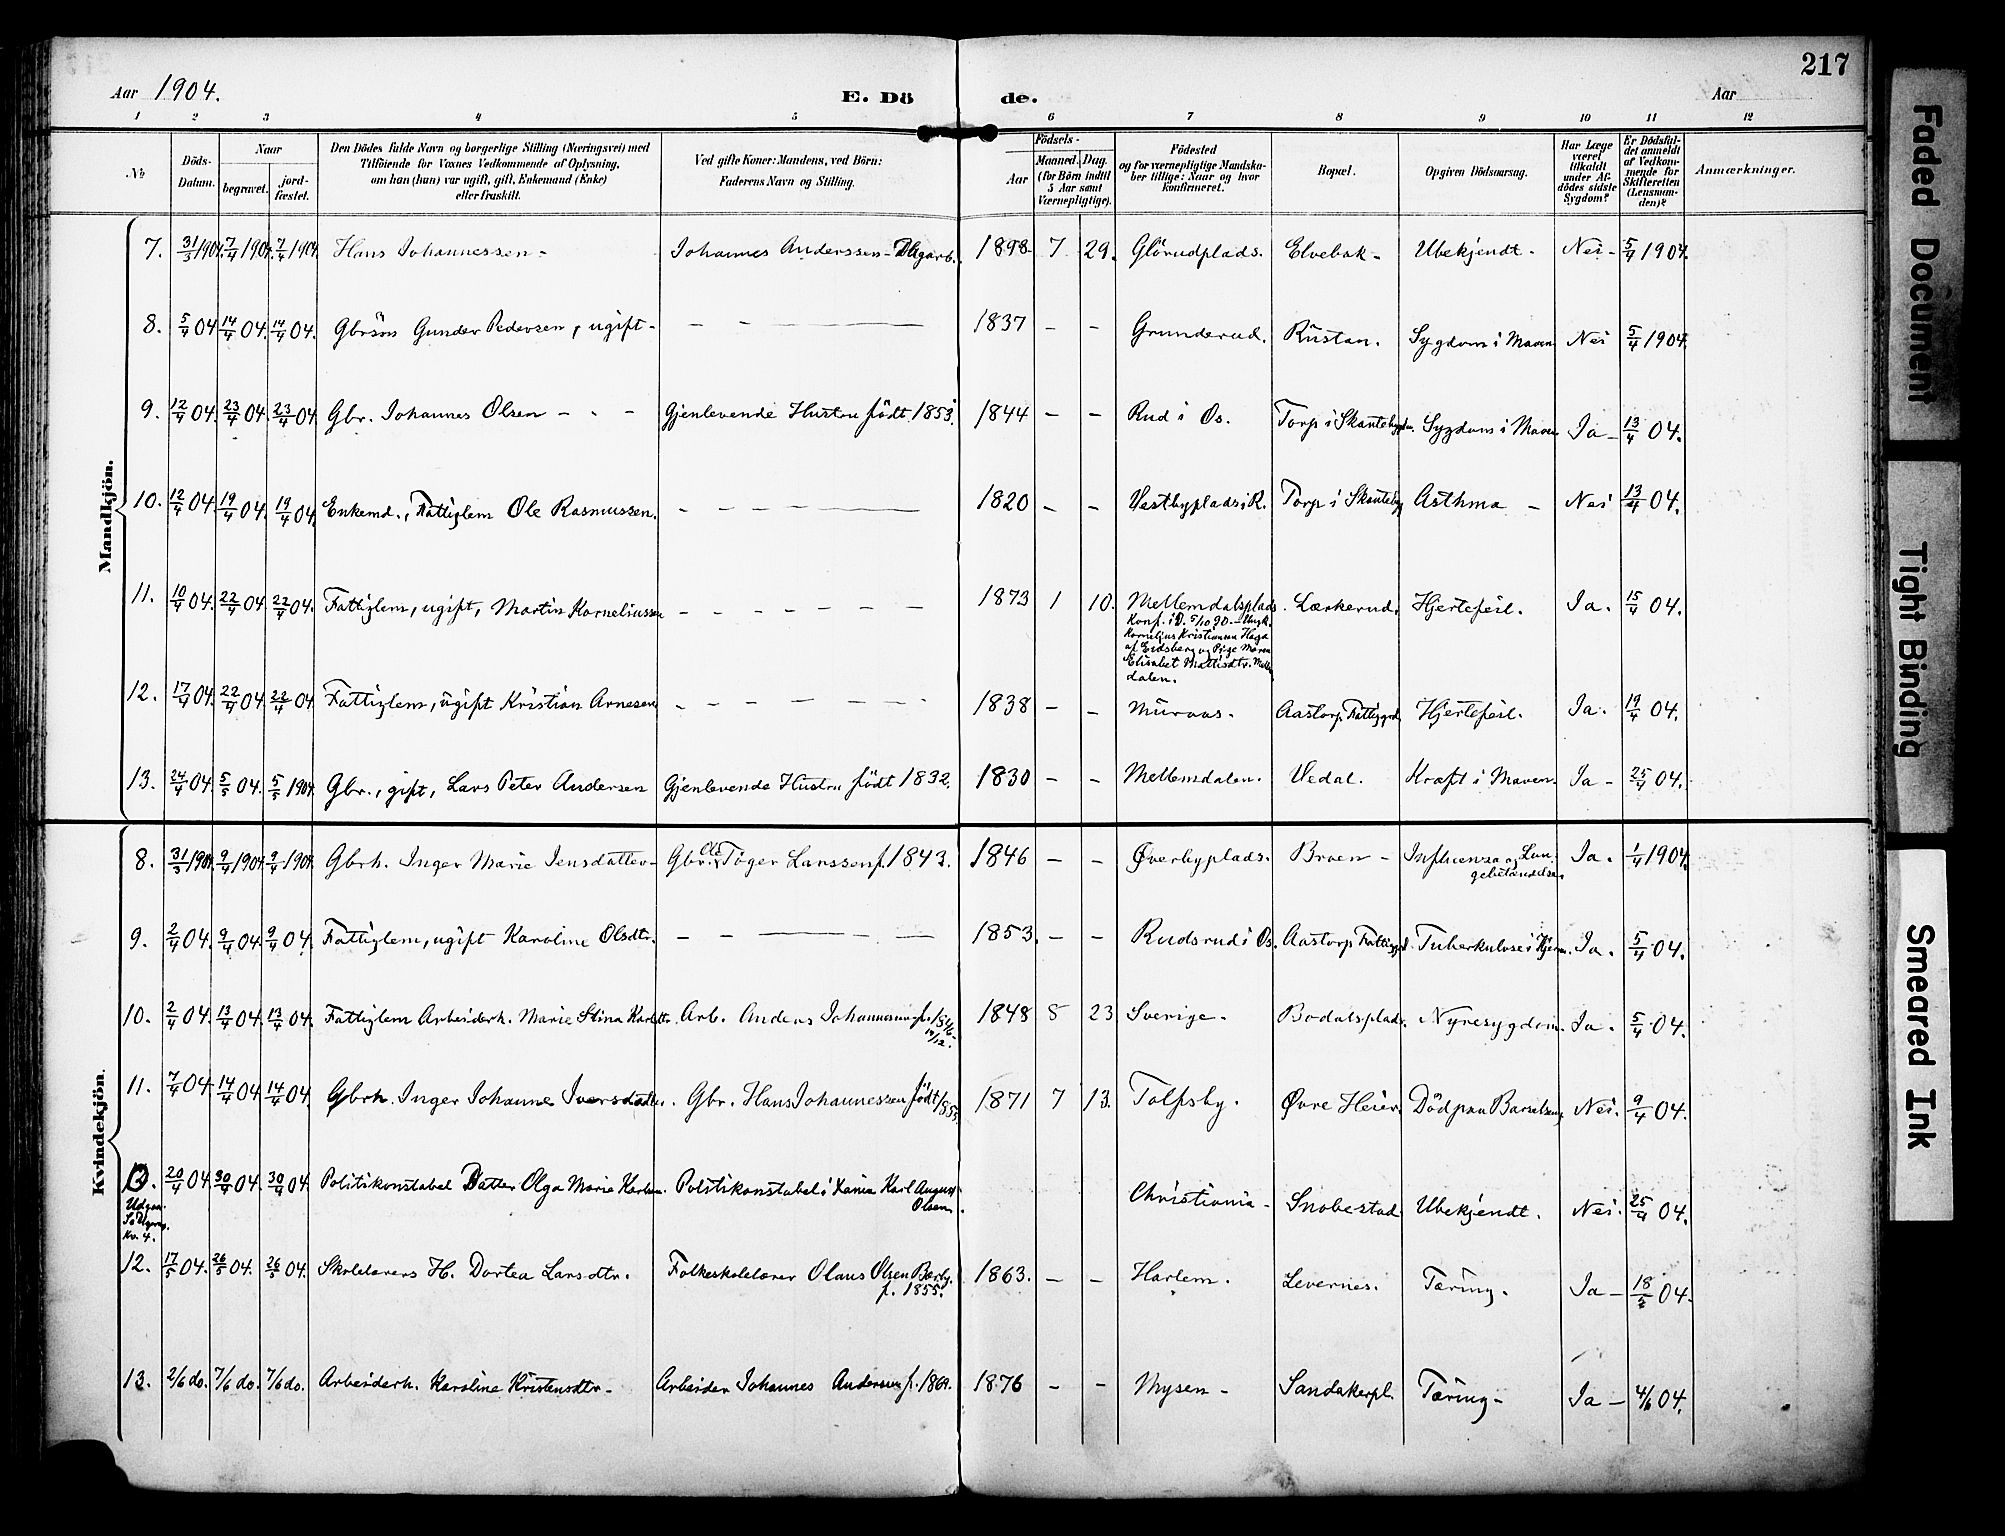 217
Aar 1904. E. Dö de. Aar
1 2 3 4 5 6 7 8 9 10 11 12
№
Döds-
Datum.
Naar
begravet.
jord-
fæstet.
Den Dödes fulde Navn og borgerlige Stilling (Næringsvei) med
Tilföiende for Voxnes Vedkommende af Oplysning,
om han (hun) var ugift, gift, Enkemand (Enke)
eller fraskilt.
Ved gifte Koner: Mandens, ved Börn:
Faderens Navn og Stilling.
Födsels-
Aar
Maaned. Dag.
(for Börn indtil
5 Aar samt
Værnepligtige).
Födested
og for værnepligtige Mandska-
ber tillige: Naar og hvor
konfirmeret.
Bopæl.
Opgiven Dödsaarsag.
Har Læge
været
tilkaldt
under Af-
dødes sidste
Sygdom?
Er Dödsfal-
det anmeldt
af Vedkom-
mende for
Skifteretten
(Lensman-
den)?
Anmærkninger.
Mandkjön.
7. 31/3 1904. 7/4 1904. 7/4 1904 Hans Johannessen - Johannes Anderssen - Dagarb. 1898 7 29. Glörudplads. Elvebak - Ubekjendt. Nei - 5/4 1904.
8. 5/4 04 14/4 04. 14/4 04. Gbrsön Gunder Pedersen, ugift - 1837 - - Grunderud. Rustan. Sygdom i Maven Nei 5/4 1904.
9. 12/4 04. 23/4 04. 23/4 04 Gbr. Johannes Olsen - - - Gjenlevende Hustru födt 1853. 1844 - - Rud i Os. Torp i Skantebygden. Sygdom i Maven Ja - 13/4 04.
10. 12/4 04. 19/4 04. 19/4 04. Enkemd., Fattiglem Ole Rasmussen. 1820 - - Vestbyplads i R. Torp i Skantebyg Asthma - Nei 13/4 04.
11. 10/4 04. 22/4 04 22/4 04. Fattiglem, ugift, Martin Korneliussen 1873 1 10. Mellemdalsplads Lærkerud. Hjertefeil. Ja. 15/4 04.
Konf. i R. 5/10 90 - Ungk.
Kornelius Kristiansen Haga
af Eidsberg og Pige Maren
Elisabet Mattisdtr. Mellem
dalen.
12. 17/4 04. 22/4 04 22/4 04 Fattiglem, ugift Kristian Arnesen 1838 - - Muraas. Aastorp Fattiggrd. Hjertefeil. Ja. 19/4 04.
13. 24/4 04. 5/5 04. 5/5 1904. Gbr., gift, Lars Peter Andersen Gjenlevende Hustru födt 1832. 1830 - - Mellemdalen. Vedal. Kræft i Maven. Ja - 25/4 04.
Kvindekjön.
8. 31/3 1904. 9/4 1904. 9/4 1904. Gbrh. Inger Marie Jensdatter - Gbr. Ole Töger Larssen f. 1843. 1846 - - Øverbyplads. Braen - Influenza og Lun- Ja. 1/4 1904.
gebetændelse.
9. 2/4 04. 9/4 04. 9/4 04. Fattiglem, ugift Karoline Olsdtr. 1853. - - Rudsrud i Os. Aastorp Fattiggrd. Tuberkulose i Hjernen. Ja. 5/4 04.
10. 2/4 04. 13/4 04. 13/4 04. Fattiglem Arbeiderh. Marie Stina Karlsdtr. Arb. Anders Johannessen f. 1846- 1848 8 23 Sverige. Bodalsplads. Nyresygdom. Ja. 5/4 04.
19/12.
11. 7/4 04. 14/4 04 14/4 04. Gbrh. Inger Johanne Iversdatter. Gbr. Hans Johannessen födt 1855. 1871 7 13. Tolfsby. Øvre Heier. Död paa Barselseng Nei. 9/4 04.
20/4 04 30/4 04. 30/4 04 Politikonstabel Datter Olga Marie Karlsen. Politikonstabel i Xania Karl August Christiania - Snobestad Ubekjendt. Nei. 25/4 04.
Olsen.
Udgaar.
Kv. 4.
12. 17/5 04. 26/5 04. 26/5 04. Skolelærers H. Dortea Larsdtr. Folkeskolelærer Olaus Olsen Bærby. 1863. - - Harlem. Levernes. Tæring. Ja - 18/5 04.
f. 1855.
13. 2/6 do. 7/6 do. 7/6 do. Arbeiderh. Karoline Kristensdtr - Arbeider Johannes Andersen f. 1869. 1876 - - Mysen - Sandakerpl. Tæring - Ja - 4/6 04.
Faded Document
Tight Binding
Smeared Ink